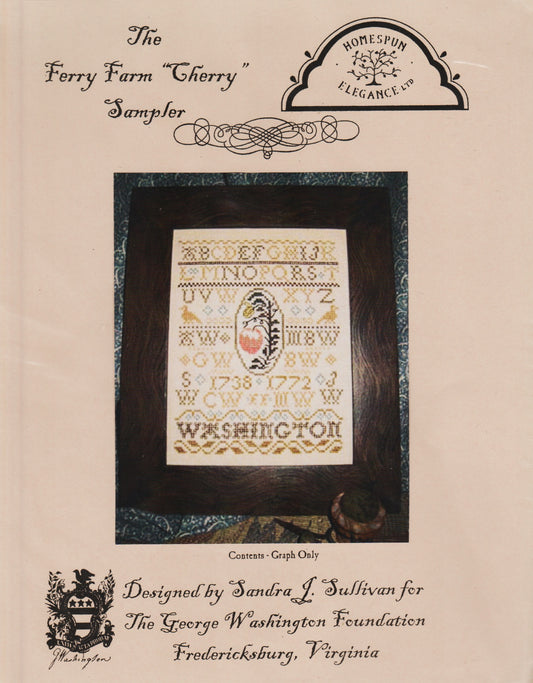 The
Ferry Farm "Cherry"
Sampler
HOMESPUN
ELEGANCE LTD
ABCDEFGHIJK
LMNOPQRST
UVW XYZ
W MBW
GW BW
S 1738 1772 J
W CW FF MW W
WASHINGTON
Contents - Graph Only
Designed by Sandra J. Sullivan for
The George Washington Foundation
Fredericksburg, Virginia
GWashington